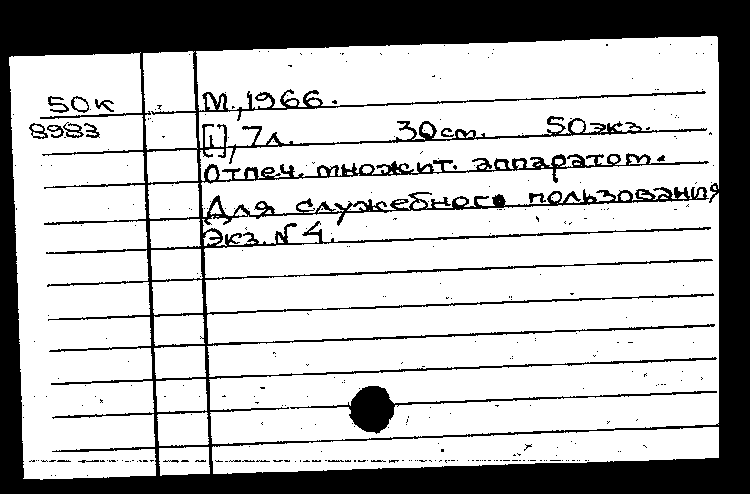 50к
8983
М., 1966.
[1], 7л. 30см. 50экз.
Отпеч. множит. аппаратом.
Для служебного пользования
Экз. № 4.